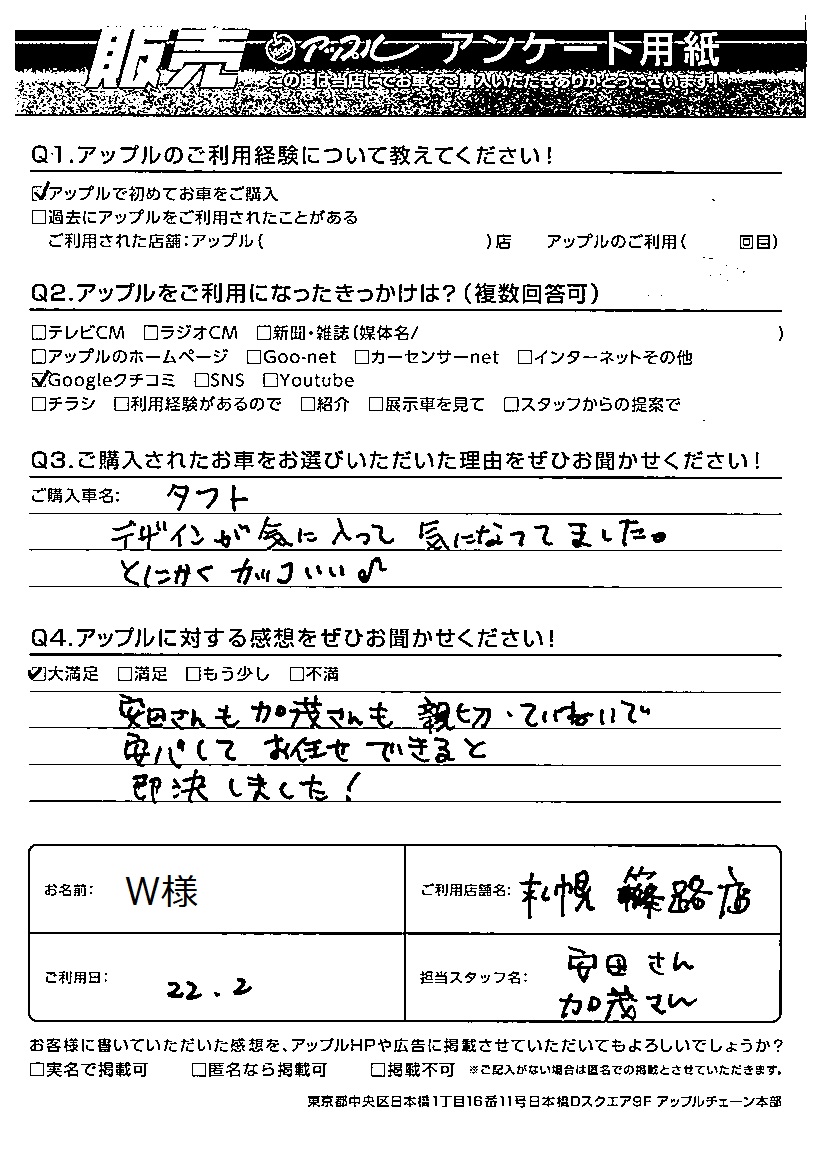 販売 アップル アンケート用紙
この度は当店にてお車をご購入いただきありがとうございます！
Q1.アップルのご利用経験について教えてください！
☑アップルで初めてお車をご購入
□過去にアップルをご利用されたことがある
ご利用された店舗：アップル（　　　）店　アップルのご利用（　　　回目）
Q2.アップルをご利用になったきっかけは？（複数回答可）
□テレビCM □ラジオCM □新聞・雑誌（媒体名/　　　）
□アップルのホームページ □Goo-net □カーセンサーnet □インターネットその他
☑Googleクチコミ □SNS □Youtube
□チラシ □利用経験があるので □紹介 □展示車を見て □スタッフからの提案で
Q3.ご購入されたお車をお選びいただいた理由をぜひお聞かせください！
ご購入車名：タフト
デザインが気に入って 気になってました。
とにかくカッコいい♪
Q4.アップルに対する感想をぜひお聞かせください！
☑大満足 □満足 □もう少し □不満
安田さんも加茂さんも 親切・ていねいで
安心して お任せできると
即決しました！
お名前：W様
ご利用店舗名：札幌 篠路店
ご利用日：22.2
担当スタッフ名：安田さん
加茂さん
お客様に書いていただいた感想を、アップルHPや広告に掲載させていただいてもよろしいでしょうか？
□実名で掲載可 □匿名なら掲載可 □掲載不可 ※ご記入がない場合は匿名での掲載とさせていただきます。
東京都中央区日本橋1丁目16番11号日本橋Dスクエア9F アップルチェーン本部